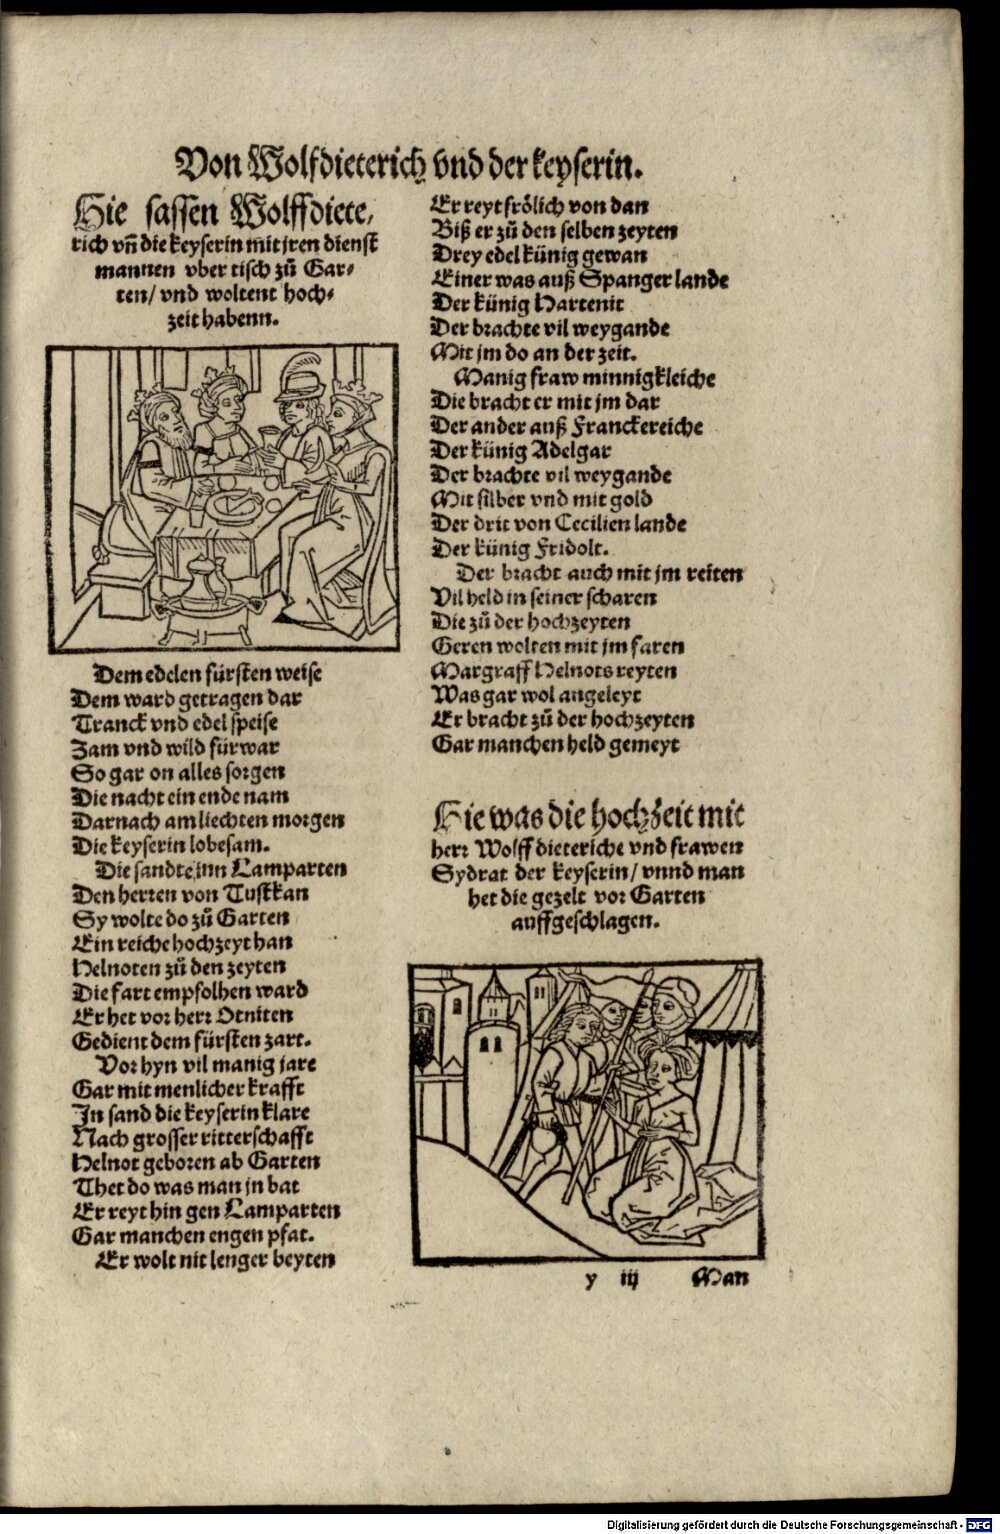 Von Wolfdieterich vnd der keyserin.
Hie sassen Wolffdiete,
rich vñ die keyserin mit jren dienst
mannen vber tisch zů Gar⸗
ten/ vnd woltent hoch⸗
zeit habenn.
Dem edelen fürsten weise
Dem ward getragen dar
Tranck vnd edel speise
Zam vnd wild fürwar
So gar on alles sorgen
Die nacht ein ende nam
Darnach am liechten morgen
Die keyserin lobesam.
Die sandte jnn Lamparten
Den herren von Tustkan
Sy wolte do zů Garten
Ein reiche hochzeyt han
Helnoten zů den zeyten
Die fart empfolhen ward
Er het vor herr Otniten
Gedient dem fürsten zart.
Vor hyn vil manig jare
Gar mit menlicher krafft
In sand die keyserin klare
Nach grosser ritterschafft
Helnot geboren ab Garten
Thet do was man jn bat
Er reyt hin gen Lamparten
Gar manchen engen pfat.
Er wolt nit lenger beyten
Er reyt frölich von dan
Biß er zů den selben zeyten
Drey edel künig gewan
Einer was auß Spanger lande
Der künig Hartenit
Der brachte vil weygande
Mit jm do an der zeit.
Manig fraw minnigkleiche
Die bracht er mit jm dar
Der ander auß Franckereiche
Der künig Adelgar
Der brachte vil weygande
Mit silber vnd mit gold
Der drit von Cecilien lande
Der künig Fridolt.
Der bracht auch mit jm reiten
Vil held in seiner scharen
Die zů der hochzeyten
Geren wolten mit jm faren
Margraff Helnots reyten
Was gar wol angeleyt
Er bracht zů der hochzeyten
Gar manchen held gemeyt
Hie was die hochzeit mit
herr Wolff dieteriche vnd frawen
Sydrat der keyserin/ vnnd man
het die gezelt vor Garten
auffgeschlagen.
y iij Man
Digitalisierung gefördert durch die Deutsche Forschungsgemeinschaft - DFG